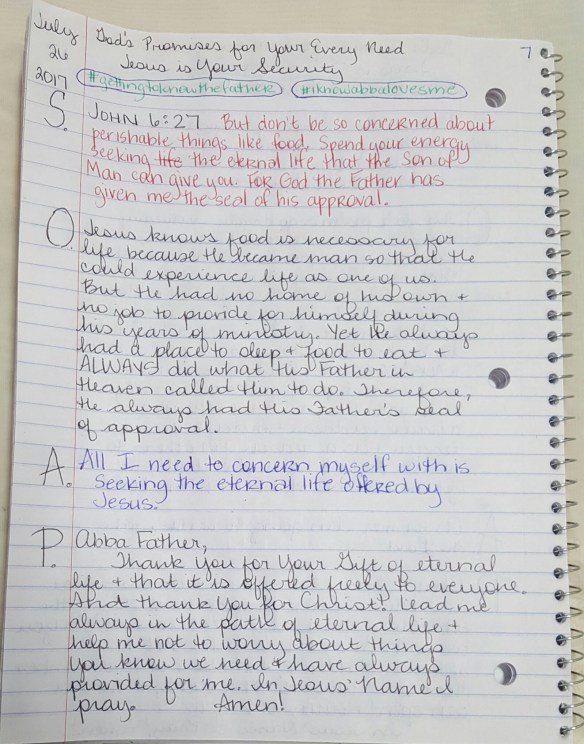 July 26 2017
God's Promises for Your Every Need 7
Jesus is Your Security
#gettingtoknowthefather #iknowabbalovesme
S. JOHN 6:27 But don't be so concerned about
perishable things like food. Spend your energy
seeking life the eternal life that the Son of
Man can give you. For God the Father has
given me the seal of his approval.
O. Jesus knows food is necessary for
life because He became man so that He
could experience life as one of us.
But He had no home of his own +
no job to provide for himself during
his years of ministry. Yet He always
had a place to sleep + food to eat +
ALWAYS did what His Father in
Heaven called Him to do. Therefore,
He always had His Father's seal
of approval.
A. All I need to concern myself with is
seeking the eternal life offered by
Jesus.
P. Abba Father,
Thank You for Your Gift of eternal
life + that it is offered freely to everyone.
And thank You for Christ! Lead me
always in the path of eternal life +
help me not to worry about things
You know we need & have always
provided for me. In Jesus' Name I
pray. Amen!